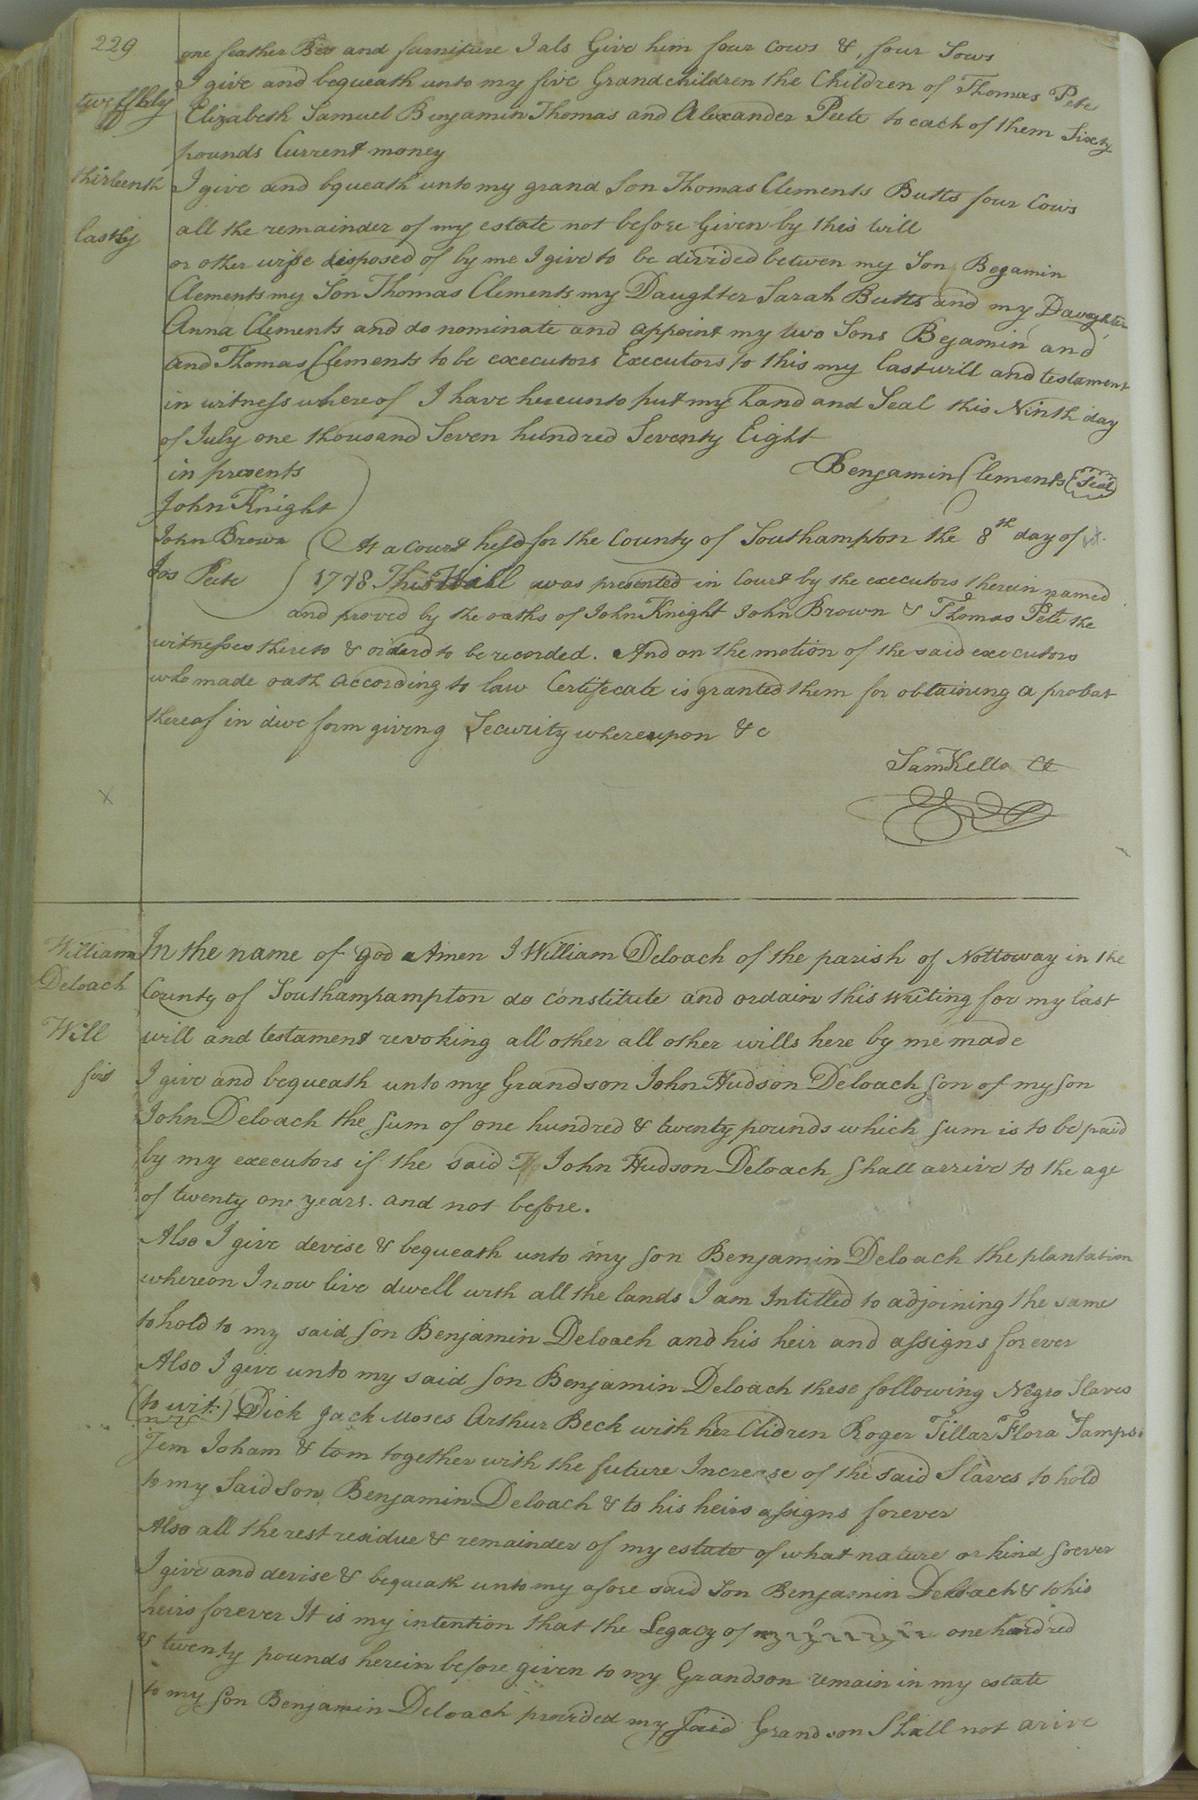 229
one feather Bed and furniture I als Give him four Cows & four Sows
twefthly I give and bequeath unto my five Grandchildren the Children of Thomas Pete
Elizabeth Samuel Benjamin Thomas and Alexander Peete to each of them Sixty
pounds Current money
thirteenth I give and bqueath unto my grand Son Thomas Clements Butts four Cows
lastly all the remainder of my estate not before Given by this will
or other wise disposed of by me I give to be divided betwen my Son Begamin
Clements my Son Thomas Clements my Daughter Sarah Butts and my Daughter
Anna Clements and do nominate and appoint my two Sons Begamin and
and Thomas Clements to be executors Executors to this my last will and testament
in witness whereof I have hereunto put my hand and Seal this Ninth day
of July one thousand Seven hundred Seventy Eight
in presents
Benjamin Clements (Seal)
John Knight
John Brown
Jos Pete
At a Court held for the County of Southampton the 8th day of
1778 This Will was presented in Court by the executors therein named
and proved by the oaths of John Knight John Brown & Thomas Pete the
witnesses thereto & orderd to be recorded. And on the motion of the said executors
who made oath according to law Certifecate is granted them for obtaining a probat
thereof in due form giving Security whereupon &c
Sam Kello Ct
x
William Deloach Will
In the name of god Amen I William Deloach of the parish of Nottoway in the
County of Southamhampton do constitute and ordain this writing for my last
will and testament revoking all other all other wills here by me made
first I give and bequeath unto my Grandson John Hudson Deloach son of my son
John Deloach the sum of one hundred & twenty pounds which sum is to be paid
by my executors if the said John Hudson Deloach shall arrive to the age
of twenty one years. and not before.
Also I give devise & bequeath unto my son Benjamin Deloach the plantation
whereon I now live dwell with all the lands I am Intitled to adjoining the same
to hold to my said son Benjamin Deloach and his heir and assigns forever
Also I give unto my said son Benjamin Deloach these following Negro Slaves
(to wit.) Dick Jack Moses Arthur Beck with her Clidren Roger Tillar Flora Samps
Jem Joham & tom together with the future Increase of the said Slaves to hold
to my Said Son Benjamin Deloach & to his heirs assigns forever
Also all the rest residue & remainder of my estate of what nature or kind soever
I give and devise & bequeath unto my afore said Son Benjamin Deloach & to his
heirs forever It is my intention that the Legacy of one hundred
& twenty pounds herein before given to my Grandson remain in my estate
to my son Benjamin Deloach provided my Said Grandson Shall not arive